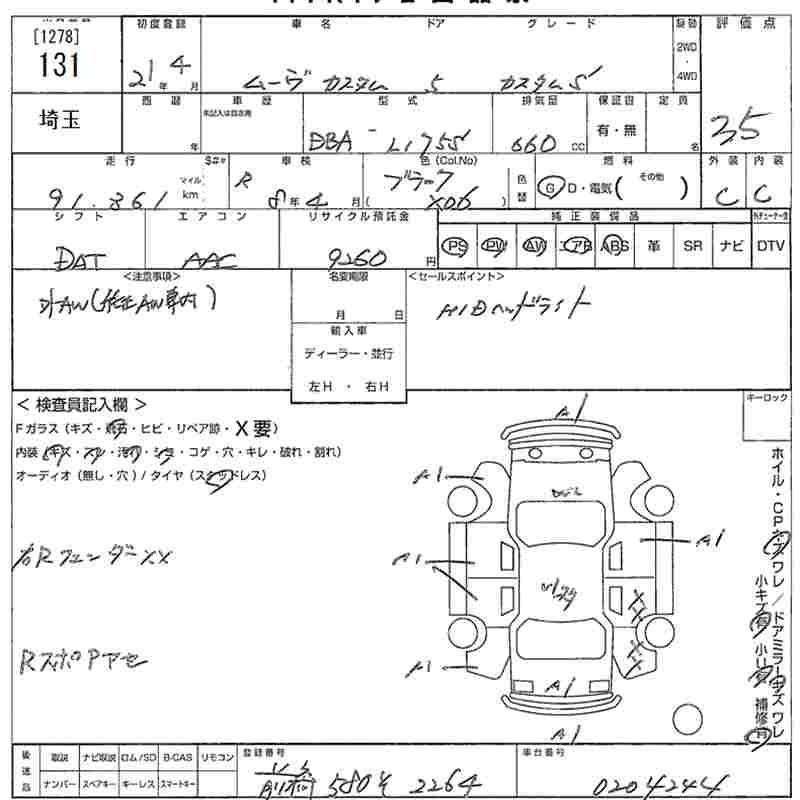 [1278]
131
初度登録
21年 4月
車名 ドア グレード
ムーヴ カスタム 5 カスタムS
駆動
2WD
・
4WD
評価点
35
埼玉
西暦
年
車歴
未記入は自家用
型式
DBA - L175S
排気量
660 cc
保証書
有・無
定員
名
走行
91.861
マイル
km
車検
R 8年 4月
色(Col.No)
ブラック
( X06 )
色替
燃料
G D・電気( その他 )
外装
C
内装
C
シフト
DAT
エアコン
AAC
リサイクル預託金
9260円
純正装備品
PS PW AW エアB ABS 革 SR ナビ DTV
<注意事項>
名変期限
月 日
<セールスポイント>
HIDヘッドライト
輸入車
ディーラー・並行
左H ・ 右H
< 検査員記入欄 >
Fガラス(キズ・飛石・ヒビ・リペア跡・X要)
内装(キズ・スレ・汚れ・シミ・コゲ・穴・キレ・破れ・割れ)
オーディオ(無し・穴)/タイヤ(スタッドレス)
キーロック
A1
A1
A1
A1
A1
A1
A1
XX
XX
右RフェンダーXX
RスポPアセ
後送品
取説 ナビ取説 ロム/SD B-CAS リモコン
ナンバー スペアキー キーレス スマートキー
登録番号
580 そ 2264
車台番号
0204244